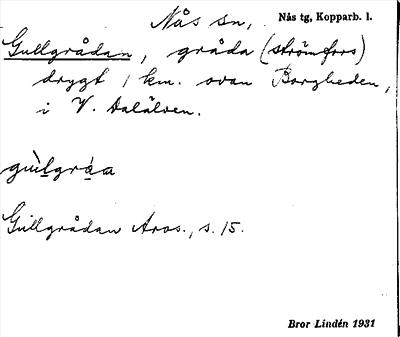 Nås sn, Nås tg, Kopparb. l.
Gullgrådan, gråda (strömfors)
drygt 1 km. ovan Borgheden,
i V. Dalälven.
gùlgráa
Gullgrådan Aros., s. 15.
Bror Lindén 1931